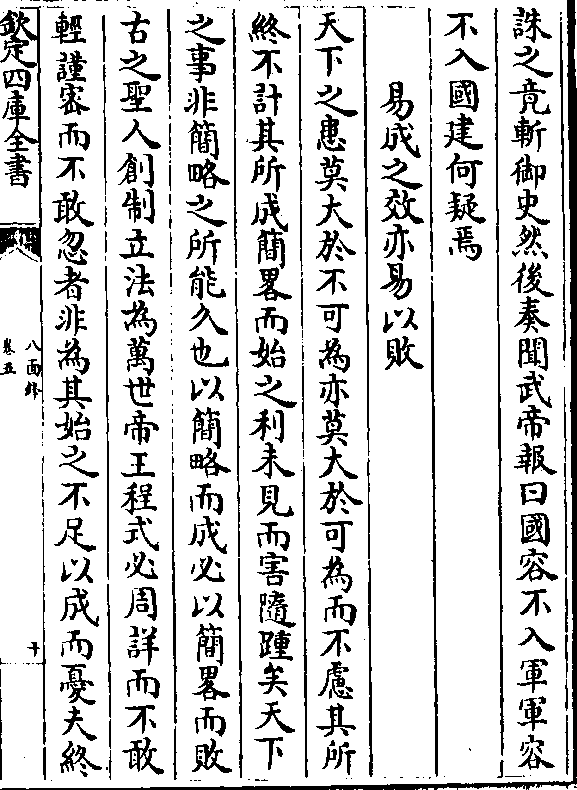 誅之竟斬御史然後奏聞武帝報曰國容不入軍軍容
不入國建何疑焉
易成之效亦易以敗
天下之患莫大於不可為亦莫大於可為而不慮其所
終不計其所成簡畧而始之利未見而害隨踵矣天下
之事非簡略之所能久也以簡略而成必以簡畧而敗
古之聖人創制立法為萬世帝王程式必周詳而不敢
輕謹宻而不敢忽者非為其始之不足以成而憂夫終
欽定四庫全書
八面鋒
卷五
十